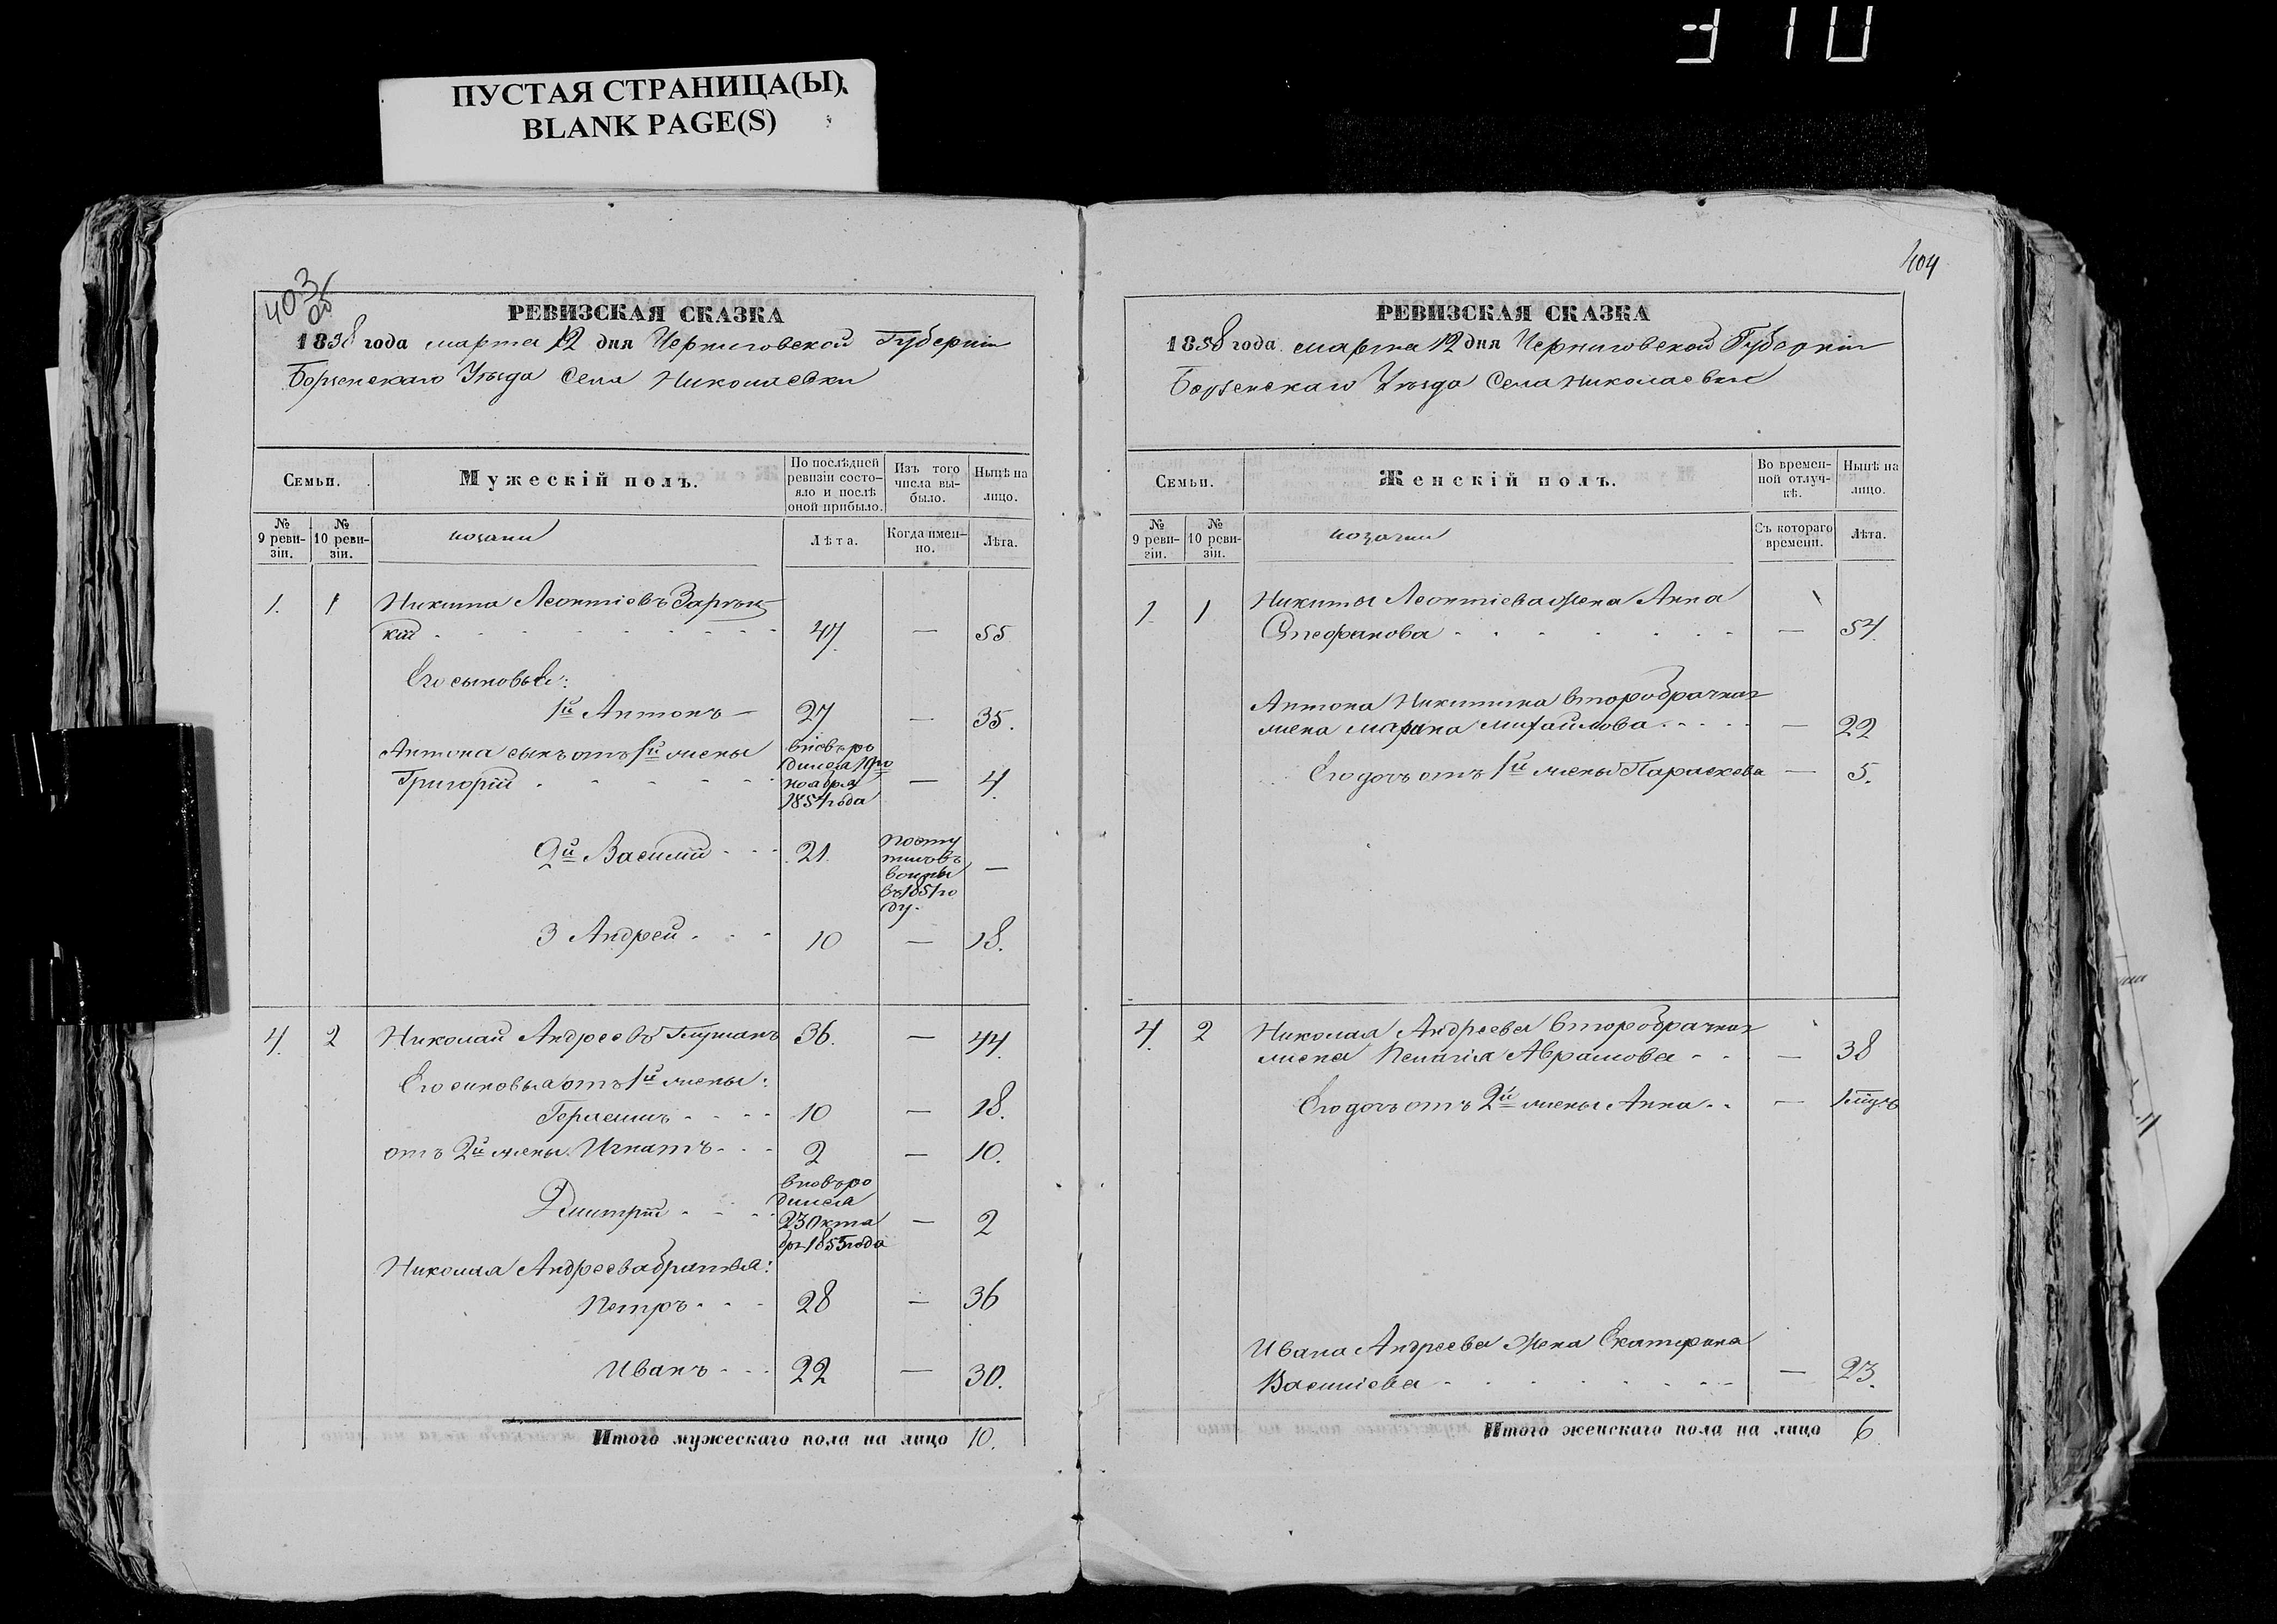 310
ПУСТАЯ СТРАНИЦА(Ы)
BLANK PAGE(S)
403 об
РЕВИЗСКАЯ СКАЗКА
1858 года марта 12 дня Черниговской Губерніи
Борзенскаго Уѣзда Села Николаевки
Семьи.
Мужескій полъ.
По послѣдней ревизіи состояло и послѣ оной прибыло.
Изъ того числа выбыло.
Нынѣ на лицо.
№ 9 ревизіи.
№ 10 ревизіи.
козаки
Лѣта.
Когда именно.
Лѣта.
1. 1 Никита Леонтіевъ
кій 47. — 55
Его сыновья:
1й Антонъ — 27 — 35.
Антона сынъ отъ 1й жены
Григорій
вновь ро
дился 19го
ноября
1854 года
— 4.
2й Василій 21.
посту
пилъ въ
въ 1851 го
ду.
—
3 Андрей 10 — 18.
4. 2 Николай Андреевъ 36. — 44.
Его сыновья отъ 1й жены:
Герасимъ 10 — 18.
отъ 2й жены Игнатъ 2 — 10.
Дмитрій
вновь ро
дился
23 Октя
бря 1855 года
— 2
Николая Андреева братья:
Петръ 28 — 36
Иванъ 22 — 30.
Итого мужескаго пола на лицо 10.
404
РЕВИЗСКАЯ СКАЗКА
1858 года марта 12 дня Черниговской Губерніи
Борзенскаго Уѣзда Села Николаевки
Семьи.
Женскій полъ.
Во временной отлучкѣ.
Нынѣ на лицо.
№ 9 ревизіи.
№ 10 ревизіи.
козачки
Съ котораго времени.
Лѣта.
1 1 Никиты Леонтіева жена Анна
Стефанова — 54.
Антона Никитина второбрачная
жена Марина Михайлова — 22
Его дочь отъ 1й жены Параскева — 5.
4. 2 Николая Андреева второбрачная
жена Пелагія Аврамова — 38
Его дочь отъ 2й жены Анна —
Ивана Андреева жена Екатерина
Василіева — 23.
Итого женскаго пола на лицо 6